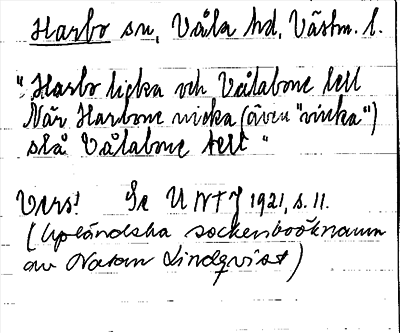 Harbo sn, Våla hd, Västm. l.
"Harbo licka och Vålabone lell
När Harbone nicka (även "vinka")
slå Vålabone tell"
Vers! Se UNT J 1921, s. 11.
(Upländska sockenboöknamn
av Natan Lindqvist)